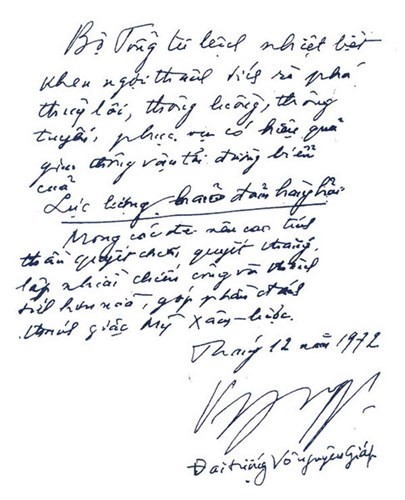 Bộ Tổng tư lệnh nhiệt liệt
khen ngợi thành tích rà phá
thuỷ lôi, thông luồng, thông
tuyến, phục vụ có hiệu quả
giao thông vận tải đường biển
của
Lực lượng bảo đảm hàng hải
Mong các đ/c nêu cao tinh
thần quyết chiến, quyết thắng,
lập nhiều chiến công và thành
tích hơn nữa, góp phần đánh
thắng giặc Mỹ xâm lược.
Tháng 12 năm 1972
Đại tướng Võ Nguyên Giáp